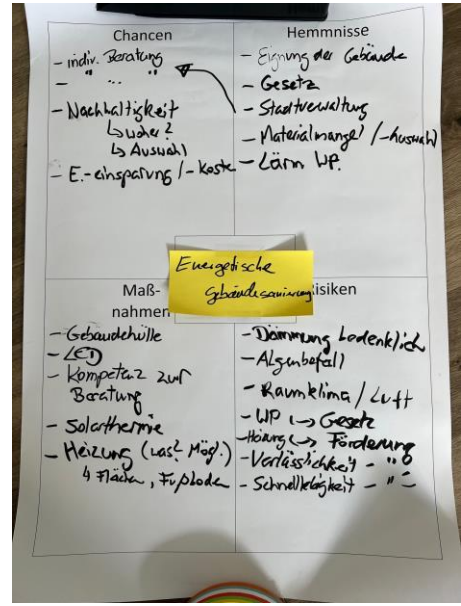 Chancen
- indiv. Beratung
- " ... "
- Nachhaltigkeit
↳ woher?
↳ Auswahl
- E.-einsparung / -kosten
Hemmnisse
- Eignung der Gebäude
- Gesetz
- Stadtverwaltung
- Materialmangel / -Auswahl
- Lärm WP.
Energetische
Gebäudesanierung
Maß-
nahmen
- Gebäudehülle
- LED
- Kompetenz zur
Beratung
- Solarthermie
- Heizung (was? Mögl.)
↳ Flächen, Fußboden
isiken
- Dämmung bedenklich
- Algenbefall
- Raumklima / Luft
- WP ↳ Gesetz
- Heizung ↳ Förderung
- Verlässlichkeit - " "
- Schnelllebigkeit - " "